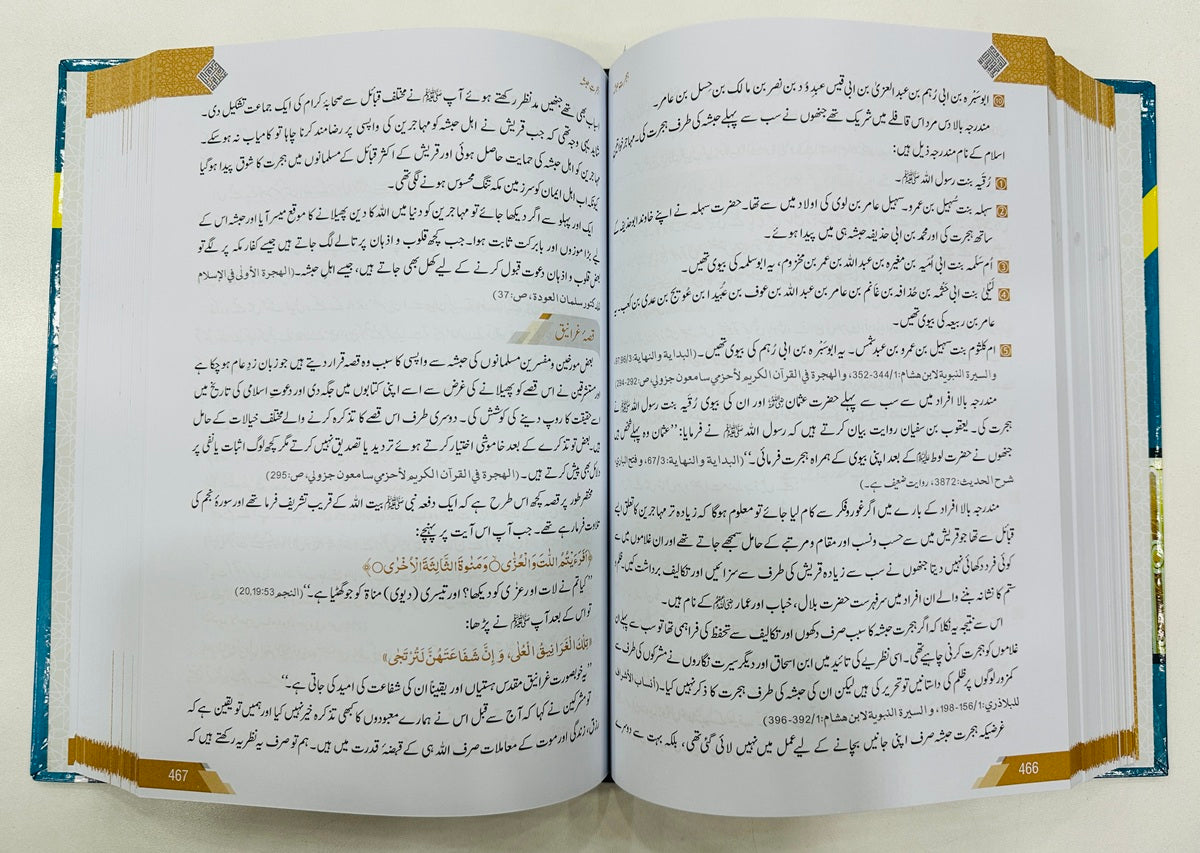 ابوسَبْرہ بن ابی رُہم بن عبدالعزیٰ بن ابی قیس عبدوُد بن نصر بن مالک بن حِسل بن عامر۔
مندرجہ بالا دس مرد اس قافلے میں شریک تھے جنھوں نے سب سے پہلے حبشہ کی طرف ہجرت کی۔ مہاجر
اسلام کے نام مندرجہ ذیل ہیں:
① رُقَیہ بنت رسول اللہ ﷺ۔
② سہلہ بنت سُہیل بن عمرو۔ سہیل عامر بن لوی کی اولاد میں سے تھا۔ حضرت سہلہ نے اپنے خاوند ابوحذیفہ کے
ساتھ ہجرت کی اور محمد بن ابی حذیفہ حبشہ ہی میں پیدا ہوئے۔
③ اُم سَلَمہ بنت ابی اُمَیہ بن مغیرہ بن عبداللہ بن عمر بن مخزوم، یہ ابوسلمہ کی بیوی تھیں۔
④ لَیلیٰ بنت ابی حَثْمہ بن حذافہ بن غانم بن عامر بن عبداللہ بن عوف بن عُبید ابن عُویج بن عدی بن کعب۔ یہ
عامر بن ربیعہ کی بیوی تھیں۔
⑤ ام کلثوم بنت سہیل بن عمرو بن عبدشمس۔ یہ ابوسَبْرہ بن ابی رُہم کی بیوی تھیں۔ (البدایة والنهایة:3/96،97
والسیرة النبویة لابن هشام:1/344-352، والهجرة في القرآن الکریم لأحزمي سامعون جزولي، ص 292-294)
مندرجہ بالا افراد میں سے سب سے پہلے حضرت عثمان رضی اللہ عنہ اور ان کی بیوی رُقَیہ بنت رسول اللہ ﷺ نے
ہجرت کی۔ یعقوب بن سفیان روایت بیان کرتے ہیں کہ رسول اللہ ﷺ نے فرمایا: ’’عثمان وہ پہلے شخص ہیں
جنھوں نے حضرت لوط علیہ السلام کے بعد اپنی بیوی کے ہمراہ ہجرت فرمائی۔‘‘ (البدایة والنهایة: 3/67، و فتح الباري
شرح الحدیث:3872، روایت ضعیف ہے۔)
مندرجہ بالا افراد کے بارے میں اگر غور و فکر سے کام لیا جائے تو معلوم ہوگا کہ زیادہ تر مہاجرین کا تعلق ایسے
قبائل سے تھا جو قریش میں سے حسب ونسب اور مقام و مرتبے کے حامل سمجھے جاتے تھے اور ان غلاموں میں سے
کوئی فرد دکھائی نہیں دیتا جنھوں نے سب سے زیادہ قریش کی طرف سے سزائیں اور تکالیف برداشت کیں۔ ظلم
ستم کا نشانہ بننے والے ان افراد میں سرفہرست حضرت بلال، خباب اور عمار رضی اللہ عنہم کے نام ہیں۔
اس سے نتیجہ یہ نکلا کہ اگر ہجرت حبشہ کا سبب صرف دکھوں اور تکالیف سے تحفظ کی فراہمی تھا تو سب سے پہلے ان
غلاموں کو ہجرت کرنی چاہیے تھی۔ اسی نظریے کی تائید میں ابن اسحاق اور دیگر سیرت نگاروں نے مشرکوں کی طرف سے
کمزور لوگوں پر ظلم کی داستانیں تو تحریر کی ہیں لیکن ان کی حبشہ کی طرف ہجرت کا ذکر نہیں کیا۔ (أنساب الأشراف
للبلاذري:1/156-198، و السیرة النبویة لابن هشام:1/392-396)
غرضیکہ ہجرت حبشہ صرف اپنی جانیں بچانے کے لیے عمل میں نہیں لائی گئی تھی، بلکہ بہت سے دوسرے
466
اسباب بھی تھے جنھیں مدنظر رکھتے ہوئے آپ ﷺ نے مختلف قبائل سے صحابۂ کرام کی ایک جماعت تشکیل دی۔
شاید یہی وجہ تھی کہ جب قریش نے اہل حبشہ کو مہاجرین کی واپسی پر رضامند کرنا چاہا تو کامیاب نہ ہوسکے۔
مہاجرین کو اہل حبشہ کی حمایت حاصل ہوئی اور قریش کے اکثر قبائل کے مسلمانوں میں ہجرت کا شوق پیدا ہوگیا
کیونکہ اب اہل ایمان کو سرزمین مکہ تنگ محسوس ہونے لگی تھی۔
ایک اور پہلو سے اگر دیکھا جائے تو مہاجرین کو دنیا میں اللہ کا دین پھیلانے کا موقع میسر آیا اور حبشہ اس کے
لیے بڑا موزوں اور بابرکت ثابت ہوا۔ جب کچھ قلوب و اذہان پر تالے لگ جاتے ہیں جیسے کفار مکہ پر لگے تو
بعض قلوب و اذہان دعوت قبول کرنے کے لیے کھل بھی جاتے ہیں، جیسے اہل حبشہ۔ (الهجرة الأولٰی في الإسلام
للدکتور سلمان العودة، ص:37)
قصۂ غرانیق
بعض مورخین و مفسرین مسلمانوں کی حبشہ سے واپسی کا سبب وہ قصہ قرار دیتے ہیں جو زبان زدِ عام ہوچکا ہے
اور مستشرقین نے اس قصے کو پھیلانے کی غرض سے اسے اپنی کتابوں میں جگہ دی اور دعوتِ اسلامی کی تاریخ میں
اسے حقیقت کا روپ دینے کی کوشش کی۔ دوسری طرف اس قصے کا تذکرہ کرنے والے مختلف خیالات کے حامل
ہیں، بعض تو تذکرے کے بعد خاموشی اختیار کرتے ہوئے تردید یا تصدیق نہیں کرتے مگر کچھ لوگ اثبات یا نفی پر
دلائل بھی پیش کرتے ہیں۔ (الهجرة في القرآن الکریم لأحزمي سامعون جزولي، ص:295)
مختصر طور پر قصہ کچھ اس طرح ہے کہ ایک دفعہ نبی ﷺ بیت اللہ کے قریب تشریف فرما تھے اور سورۂ نجم کی
تلاوت فرما رہے تھے۔ جب آپ اس آیت پر پہنچے:
﴿اَفَرَءَيْتُمُ اللّٰتَ وَالْعُزّٰى ۝ وَمَنٰوةَ الثَّالِثَةَ الْاُخْرٰى ۝﴾
’’کیا تم نے لات اور عزّٰی کو دیکھا؟ اور تیسری (دیوی) مناۃ کو جو گھٹیا ہے۔‘‘ (النجم 53:20,19)
تو اس کے بعد آپ ﷺ نے پڑھا:
«تِلْكَ الْغَرَانِيقُ الْعُلٰى، وَ إِنَّ شَفَاعَتَهُنَّ لَتُرْتَجٰى»
’’یہ خوبصورت غرانیق مقدس ہستیاں اور یقیناً ان کی شفاعت کی امید کی جاتی ہے۔‘‘
تو مشرکین نے کہا کہ آج سے قبل اس نے ہمارے معبودوں کا کبھی تذکرہ خیر نہیں کیا اور ہمیں تو یقین ہے کہ
رزق، زندگی اور موت کے معاملات صرف اللہ ہی کے قبضۂ قدرت میں ہیں۔ ہم تو صرف یہ نظریہ رکھتے ہیں کہ
467